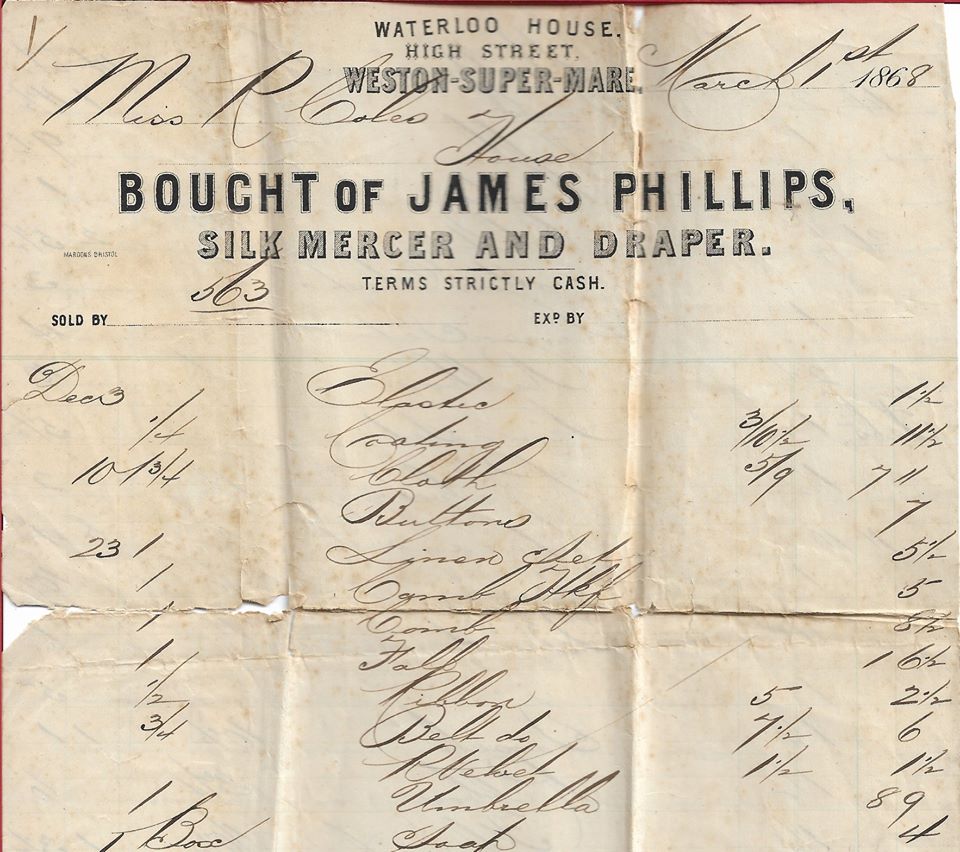 WATERLOO HOUSE.
HIGH STREET,
WESTON-SUPER-MARE, March 1st 1868
Miss R Coles
House
BOUGHT OF JAMES PHILLIPS,
SILK MERCER AND DRAPER.
MARDONS BRISTOL
TERMS STRICTLY CASH.
563
SOLD BY EXD BY
Dec 3 Elastic 1½
1/4 Coating 3/10½ 11½
10 1 3/4 Cloth 5/9 7 11
Buttons 7
23 1 Linen 5½
1 Camb Hkf 5
1 Comb 8½
1 Fall 1 6½
1/2 Ribbon 5 2½
3/4 Belt do 7½ 6
R Velvet 1½ 1½
1 Umbrella 8 9
1 Box Soap 4